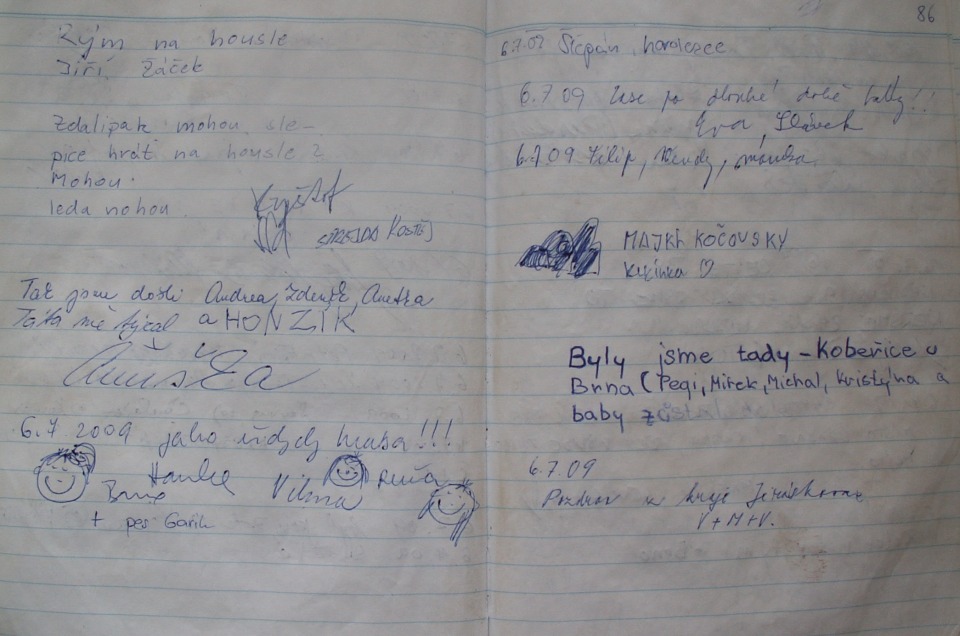 Rým na housle
Jiří Žáček
Zdalipak mohou sle-
pice hrát na housle?
Mohou.
leda nohou.
Kryštof
STREJDA KOSTĚJ
Tak jsme došli Andrea, Zdeněk, Anetka
Táta mě týral a HONZÍK
Anuška
6.7 2009 jako vždycky krása!!!
Hanka Vilma
+ pes Garik
86
6.7.09 Štěpán, horolezec
6.7 09 Zase po dlouhé době
Eva, Slávek
6.7.09 Filip,
MAJKL KOČOVSKY
♡
Byly jsme tady - Kobeřice u
Brna (Pegi, Mirek, Michal, Kristýna a
baby
6.7.09
Pozdrav z kraje
V+M+V.